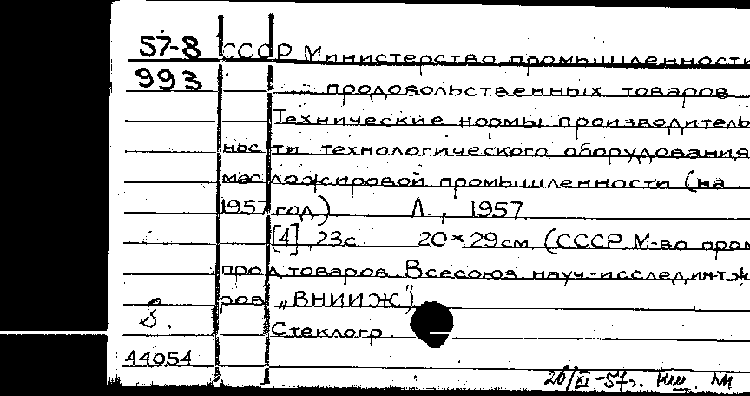 57-8 СССР Министерство промышленности
993 продовольственных товаров
Технические нормы производитель
нос ти технологического оборудования
мас ложировой промышленности (на
1957 год) Л., 1957
[4], 23с. 20×29см. (СССР М-во пром
прод.товаров. Всесоюз науч-исслед ин-т ж
ров „ВНИИЖ")
Стеклогр.
44054